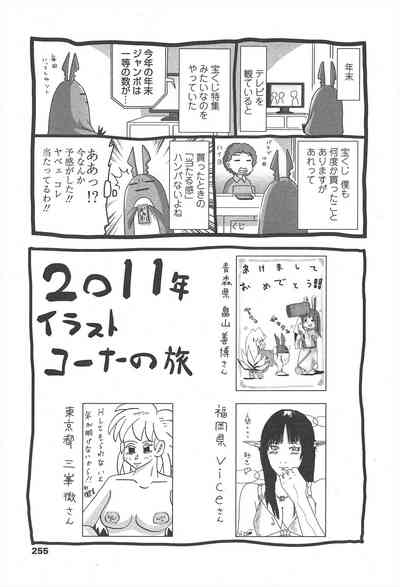 年末
テレビを
観ていると
宝くじ特集
みたいなのを
やっていた
今年の年末
ジャンボは
一等の数が
毎回
いってしゃッ
宝くじ 僕も
何度か買ったこと
ありますが
あれって
ハイヨ
くじ
買ったときの
「当たる感」
ハンパないよね
ああっ!?
今なんか
予感がした!!
ヤベ コレ
当たってるわ!!
2011年
イラスト
コーナーの旅
あけまして
おめでとう!!
青森県 畠山善博さん
福岡県 viceさん
東京都 三峯徹さん
255